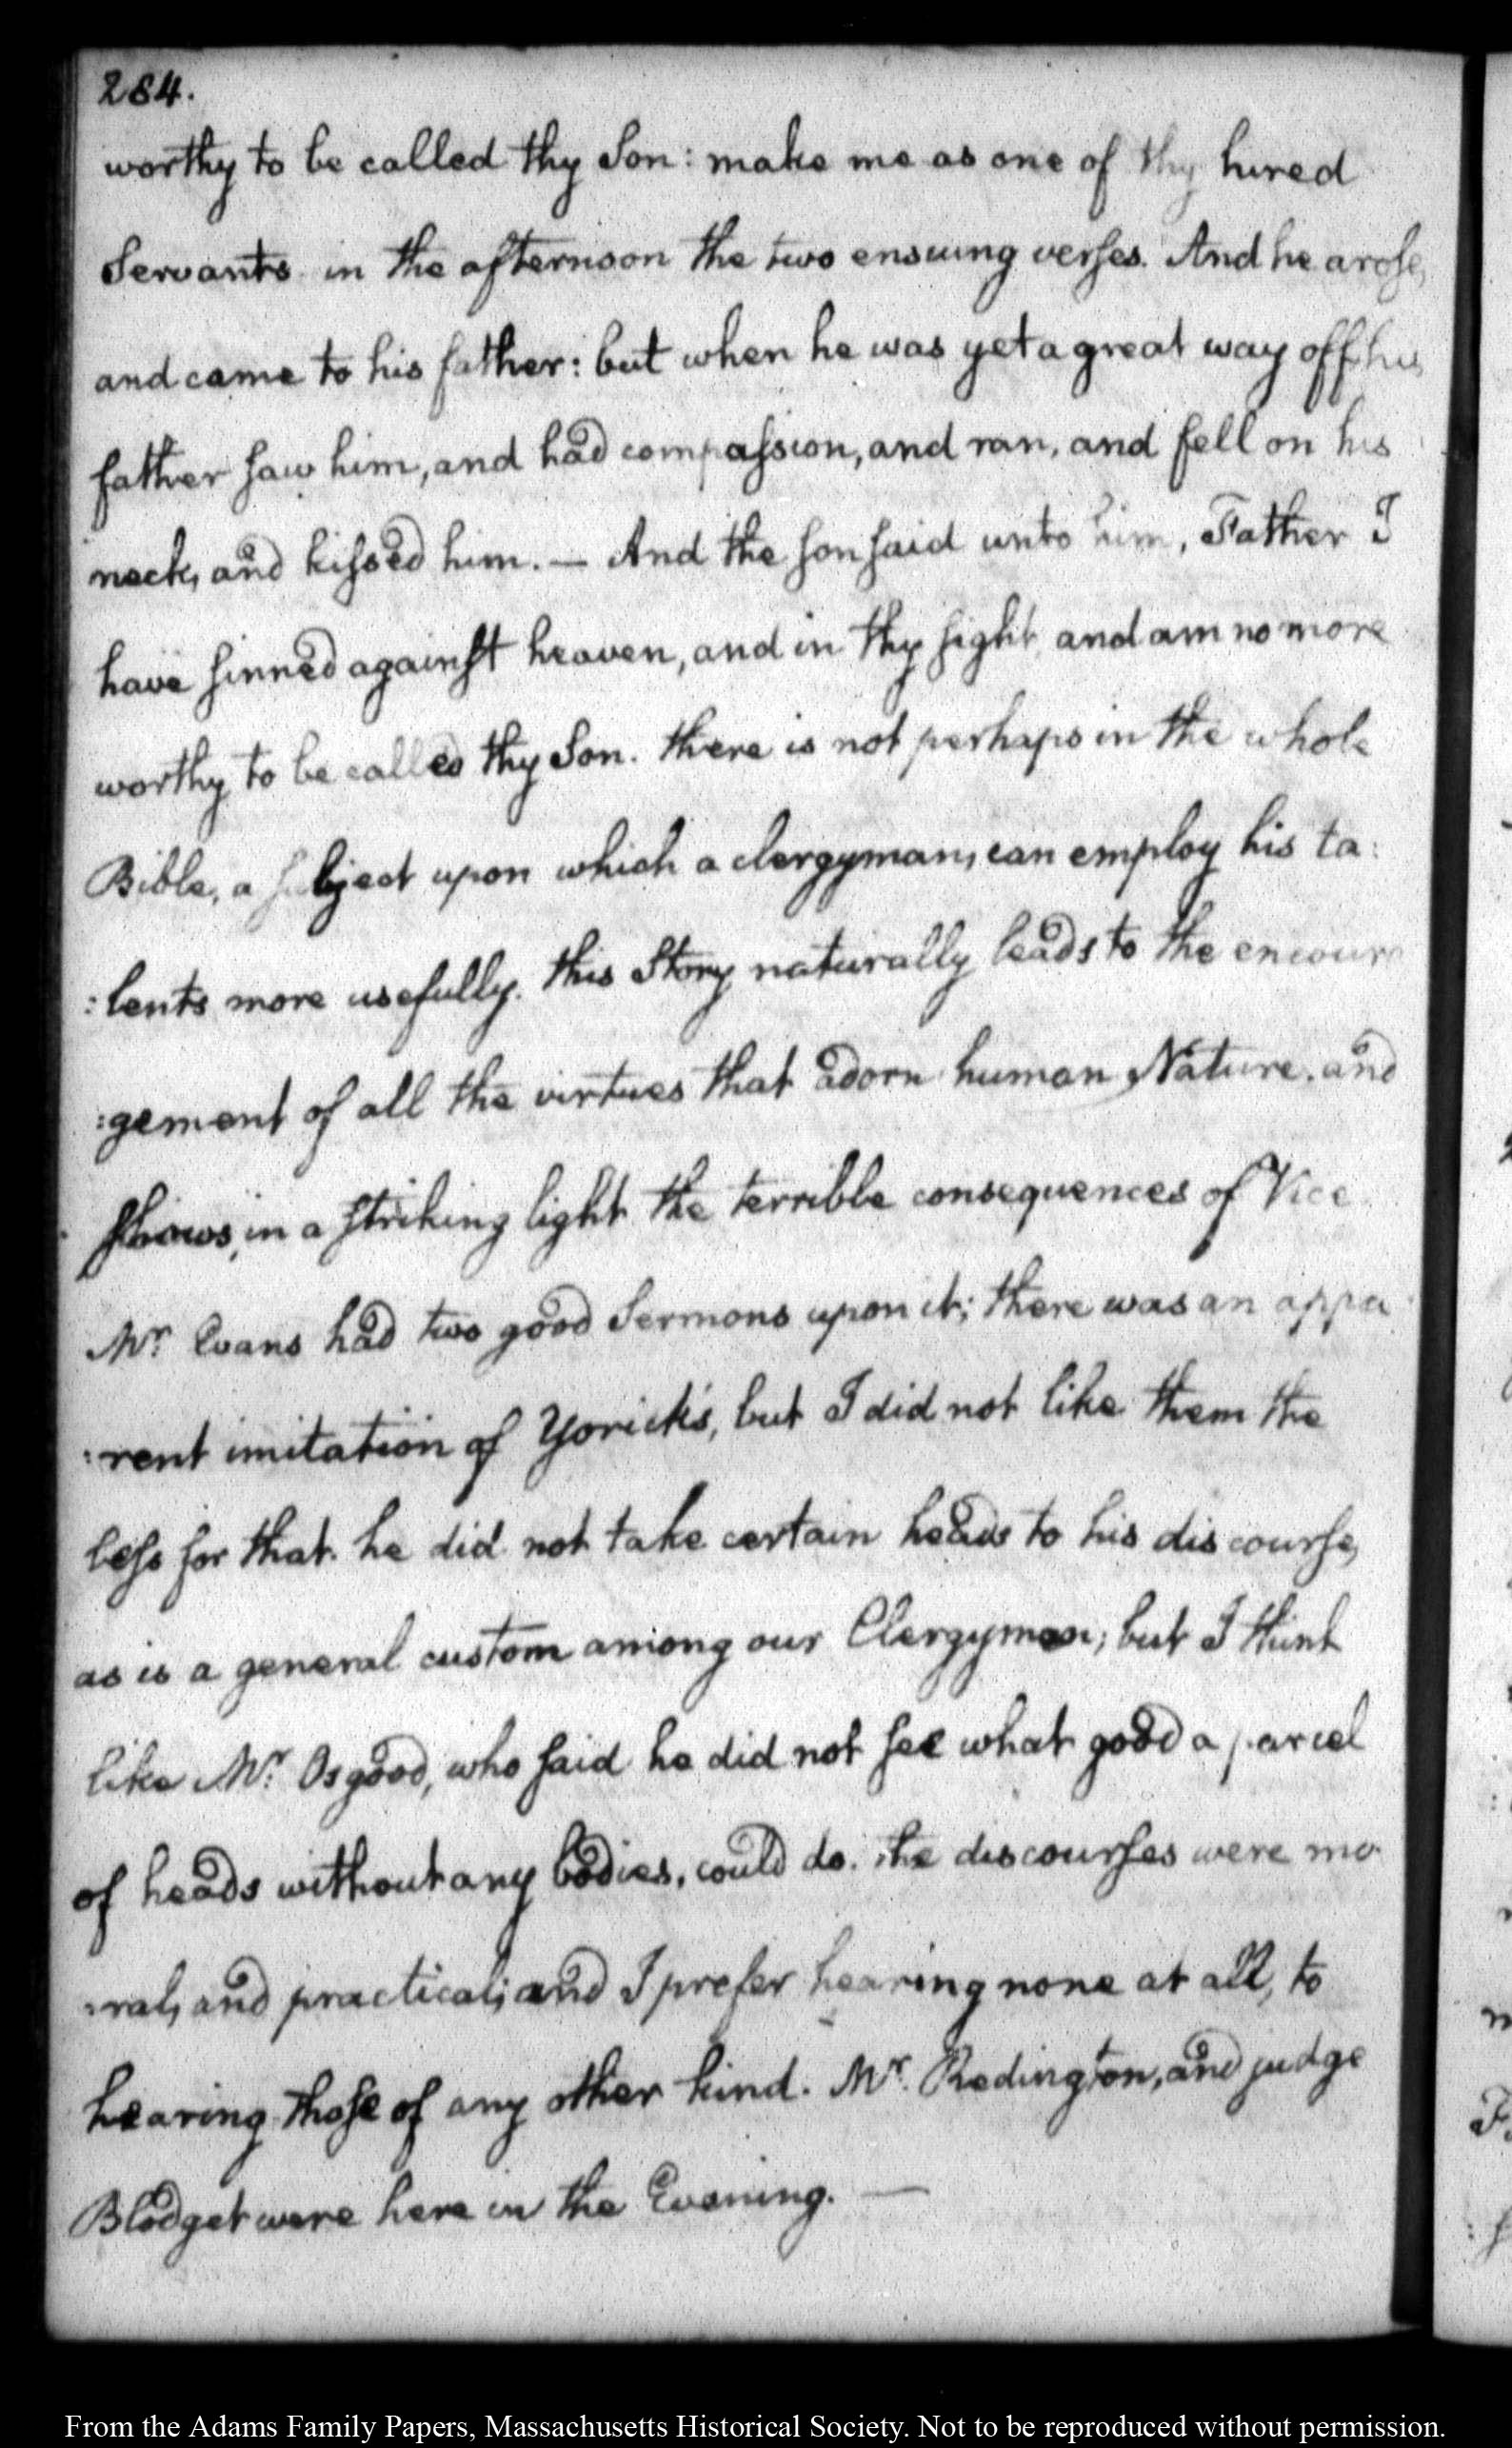 284.
worthy to be called thy Son: make me as one of thy hired
Servants in the afternoon the two ensuing verses. And he arose,
and came to his father: but when he was yet a great way off his
father saw him, and had compassion, and ran, and fell on his
neck, and kissed him. — And the son said unto him, Father I
have sinned against heaven, and in thy sight and am no more
worthy to be called thy Son. there is not perhaps in the whole
Bible, a subject upon which a clergyman, can employ his ta:
:lents more usefully. this Story naturally leads to the encoura
:gement of all the virtues that adorn human Nature. and
shows, in a striking light the terrible consequences of Vice.
Mr. Evans had two good Sermons upon it; there was an appa
:rent imitation of Yorick's, but I did not like them the
less for that. he did not take certain heads to his discourse,
as is a general custom among our Clergymen; but I think
like Mr. Osgood, who said he did not see what good a parcel
of heads without any bodies, could do. the discourses were mo
:ral, and practical; and I prefer hearing none at all, to
hearing those of any other kind. Mr. Redington, and judge
Blodget were here in the Evening. —
From the Adams Family Papers, Massachusetts Historical Society. Not to be reproduced without permission.